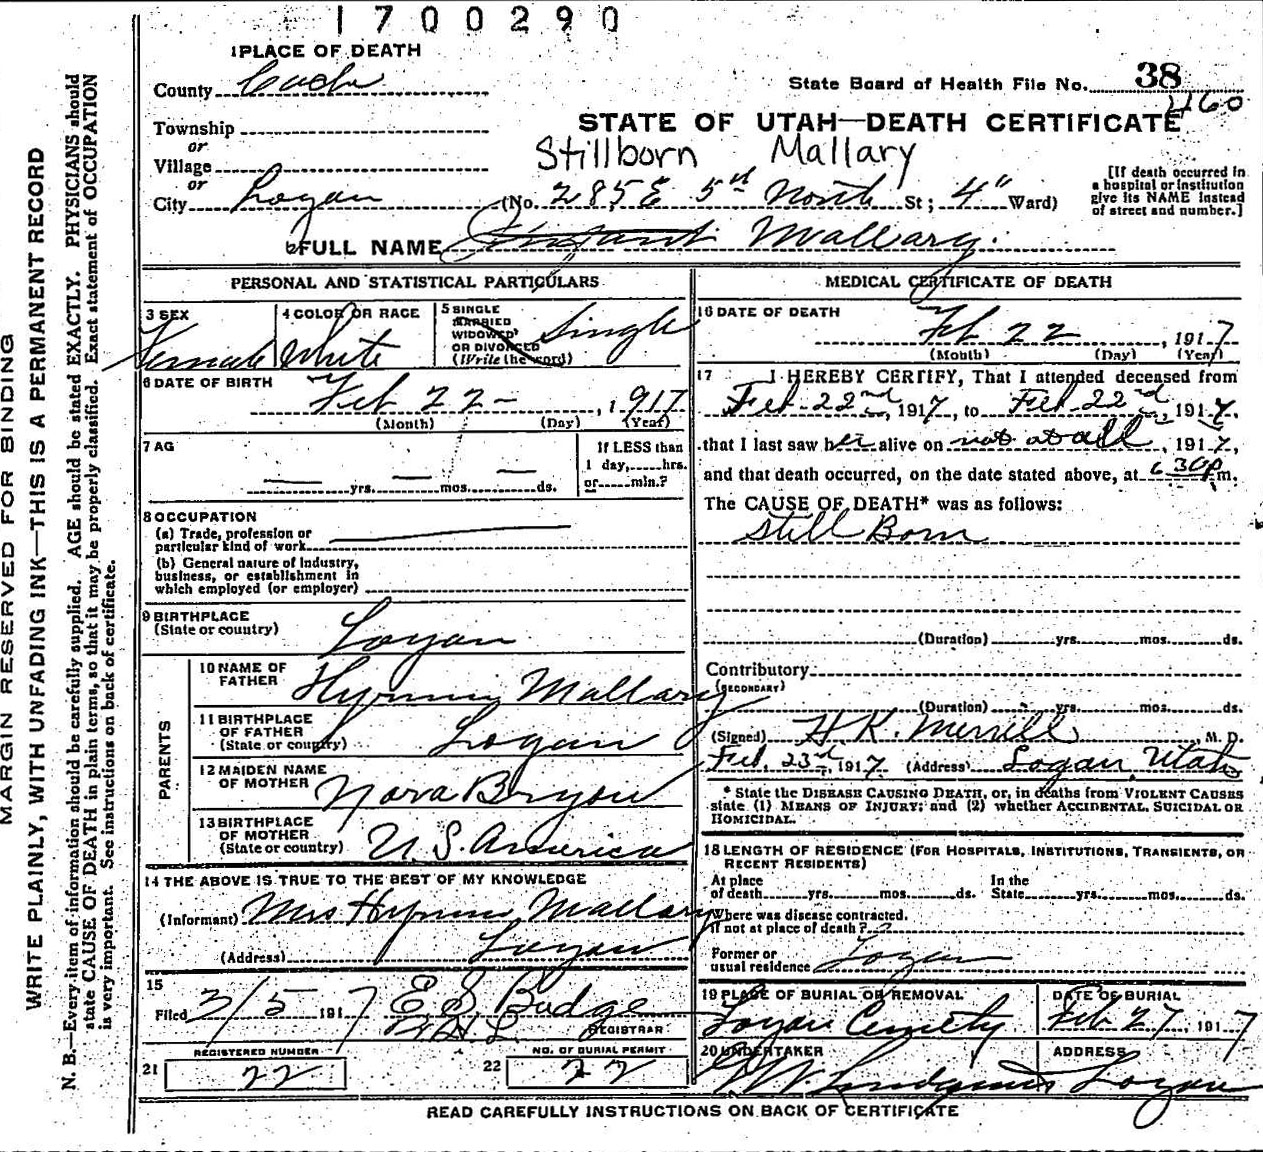 1700290
1 PLACE OF DEATH
County Cache
State Board of Health File No. 38
460
Township
or
Village
or
City Logan
STATE OF UTAH—DEATH CERTIFICATE
Stillborn Mallary
(No. 285 E 5th North St; 4" Ward)
[If death occurred in
a hospital or institution
give its NAME instead
of street and number.]
2 FULL NAME Infant Mallary.
PERSONAL AND STATISTICAL PARTICULARS
3 SEX
Female
4 COLOR OR RACE
White
5 SINGLE
MARRIED
WIDOWED
OR DIVORCED
(Write the word)
Single
6 DATE OF BIRTH
Feb 22 - , 1917
(Month) (Day) (Year)
7 AG
— yrs. — mos. — ds.
If LESS than
1 day, hrs.
or min.?
8 OCCUPATION
(a) Trade, profession or
particular kind of work
(b) General nature of industry,
business, or establishment in
which employed (or employer)
9 BIRTHPLACE
(State or country)
Logan
PARENTS
10 NAME OF
FATHER
Hyrum Mallary
11 BIRTHPLACE
OF FATHER
(State or country)
Logan
12 MAIDEN NAME
OF MOTHER
Nora Bryon
13 BIRTHPLACE
OF MOTHER
(State or country)
U.S. America
14 THE ABOVE IS TRUE TO THE BEST OF MY KNOWLEDGE
(Informant) Mrs Hyrum Mallary
(Address) Logan
15
Filed 3/5 1917 E S Budge
REGISTRAR
REGISTERED NUMBER
21 22
NO. OF BURIAL PERMIT
22 22
MEDICAL CERTIFICATE OF DEATH
16 DATE OF DEATH
Feb 22 , 1917
(Month) (Day) (Year)
17 I HEREBY CERTIFY, That I attended deceased from
Feb 22nd, 1917, to Feb 22nd, 1917,
that I last saw her alive on not at all, 1917,
and that death occurred, on the date stated above, at 6 30 p m.
The CAUSE OF DEATH* was as follows:
Still Born
(Duration) yrs. mos. ds.
Contributory
(SECONDARY)
(Duration) yrs. mos. ds.
(Signed) H. K. Merrill, M. D.
Feb, 23rd, 1917 (Address) Logan, Utah
* State the DISEASE CAUSING DEATH, or, in deaths from VIOLENT CAUSES
state (1) MEANS OF INJURY; and (2) whether ACCIDENTAL, SUICIDAL OR
HOMICIDAL.
18 LENGTH OF RESIDENCE (FOR HOSPITALS, INSTITUTIONS, TRANSIENTS, OR
RECENT RESIDENTS)
At place
of death yrs. mos. ds.
In the
State yrs. mos. ds.
Where was disease contracted,
if not at place of death?
Former or
usual residence Logan
19 PLACE OF BURIAL OR REMOVAL
Logan Cemetery
DATE OF BURIAL
Feb 27, 1917
20 UNDERTAKER
ADDRESS
Logan
READ CAREFULLY INSTRUCTIONS ON BACK OF CERTIFICATE
MARGIN RESERVED FOR BINDING
WRITE PLAINLY, WITH UNFADING INK—THIS IS A PERMANENT RECORD
N. B.—Every item of information should be carefully supplied. AGE should be stated EXACTLY. PHYSICIANS should
state CAUSE OF DEATH in plain terms, so that it may be properly classified. Exact statement of OCCUPATION
is very important. See instructions on back of certificate.